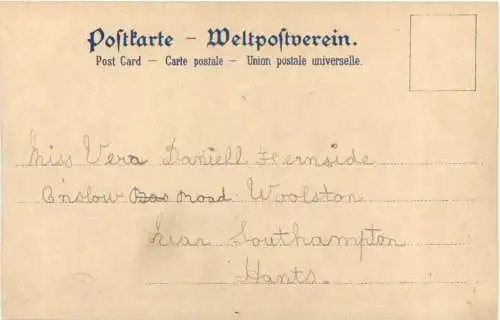 Postkarte – Weltpostverein.
Post Card — Carte postale — Union postale universelle.
Miss Vera Daniell Fernside
Onslow Road Woolston
Near Southampton
Hants.